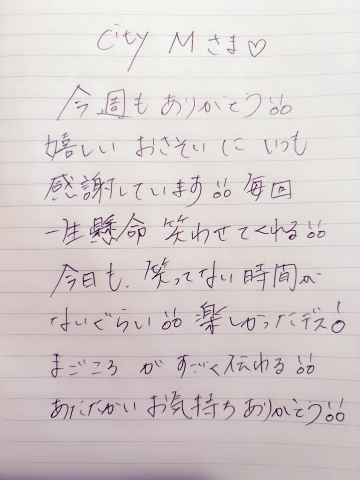 City Mさま♡
今週も ありがとう!!
嬉しい おさそいに いつも
感謝しています!! 毎回
一生懸命 笑わせてくれる!!
今日も、笑ってない時間が
ないぐらい!! 楽しかったデス!
まごころ が すごく伝わる!!
あたたかい お気持ち ありがとう!!